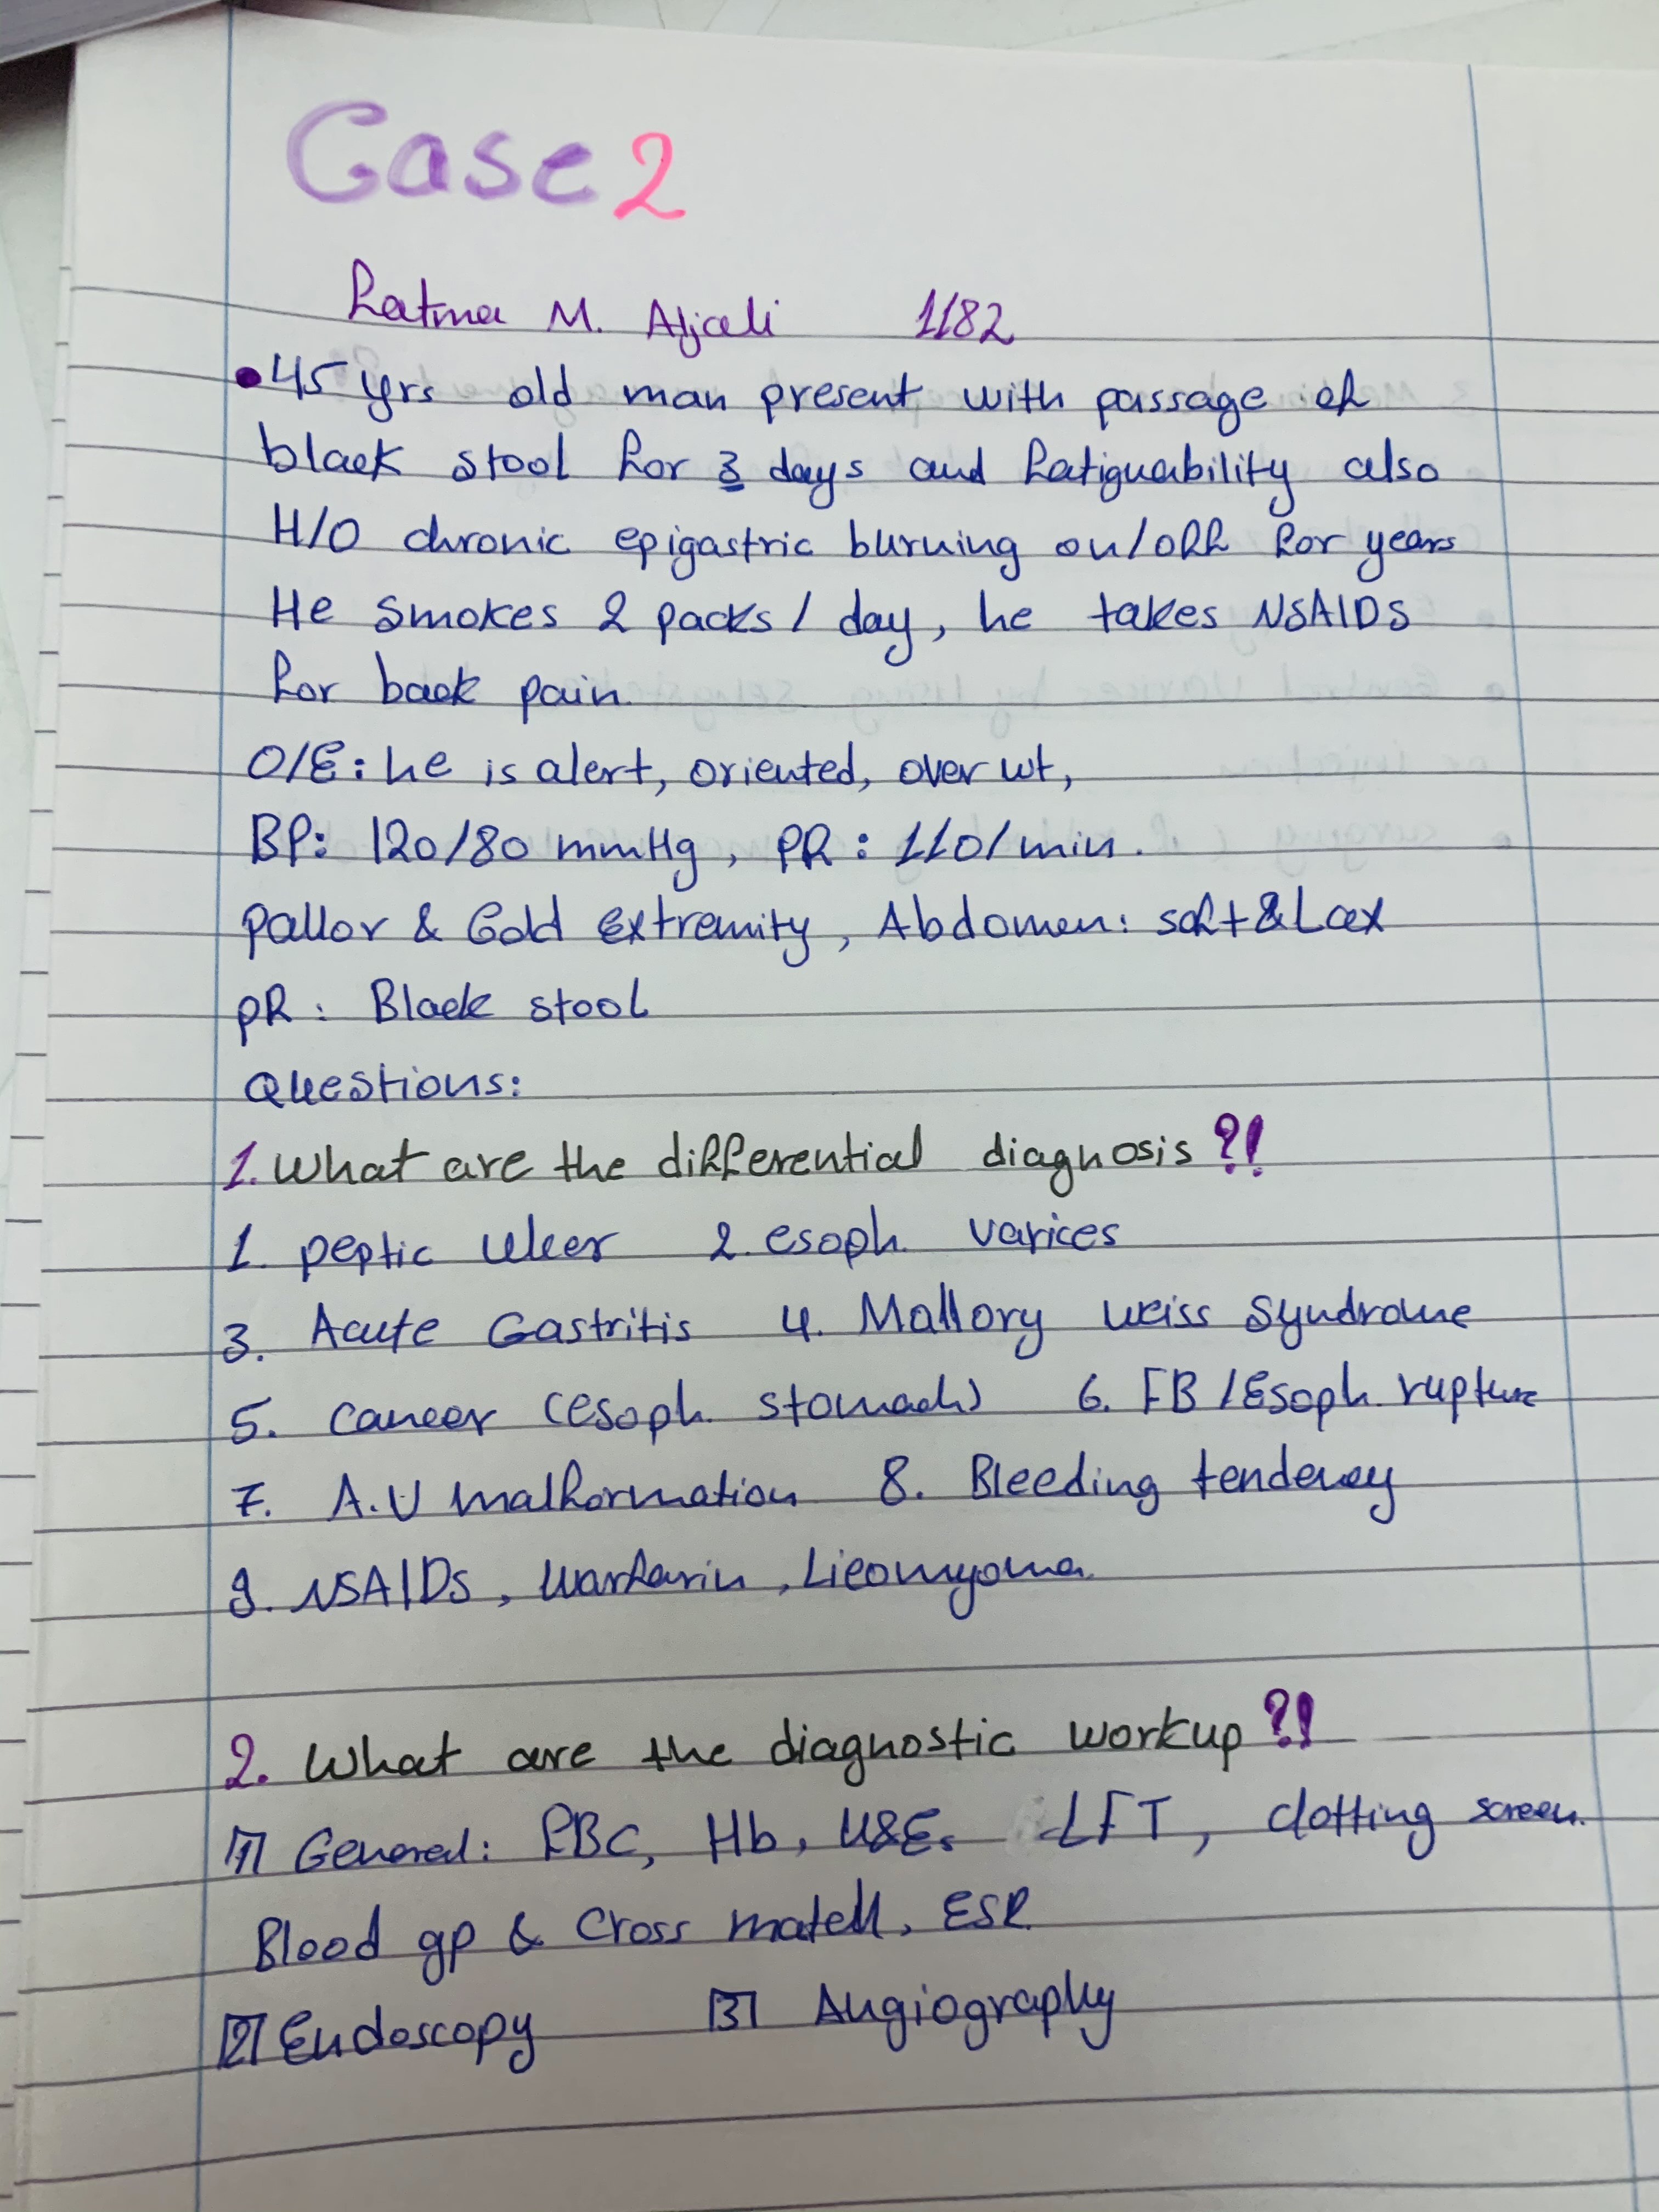 Case 2
Fatma M. Aljali 1182
• 45 yrs old man present with passage of
black stool for 3 days and fatiguability also
H/O chronic epigastric burning on/off for years
He smokes 2 packs / day, he takes NSAIDS
for back pain.
O/E: he is alert, oriented, over wt,
BP: 120/80 mmHg, PR: 110/min.
pallor & Cold extremity, Abdomen: soft & Lax
PR: Black stool
Questions:
1. What are the differential diagnosis ?!
1. peptic ulcer 2. esoph. varices
3. Acute Gastritis 4. Mallory weiss syndrome
5. cancer (esoph. stomach) 6. FB / Esoph. rupture
7. A.V malformation 8. Bleeding tendency
9. NSAIDs, Warfarin, Lieomyoma.
2. What are the diagnostic workup ?!
1 General: FBC, Hb, U&E. LFT, clotting screen.
Blood gp & Cross match, ESR
2 Endoscopy 3 Angiography